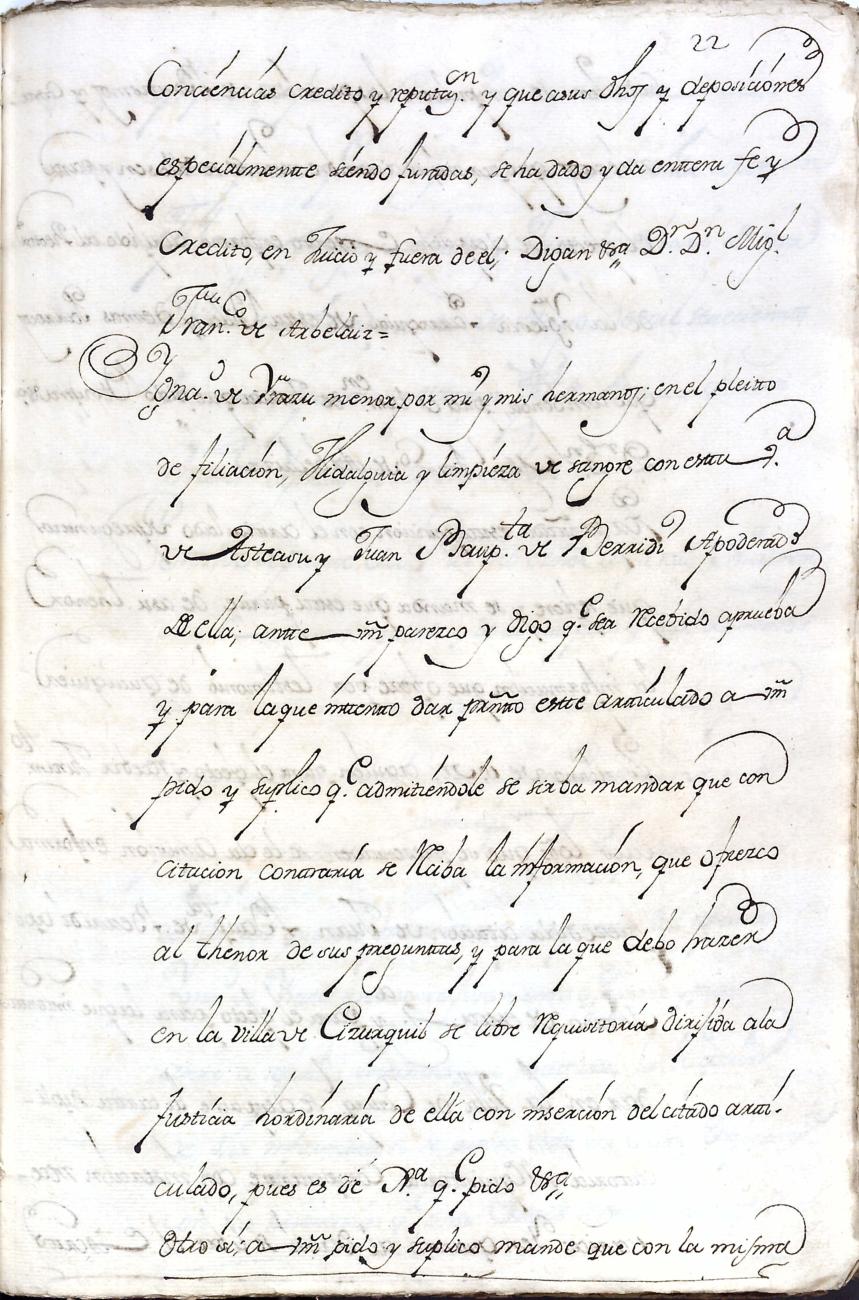 22
Conciencias credito y reputaz.on y que asus dhos y deposiciónes
especialmentte siéndo juradas, se ha dado y da enttera fe y
Credito, en Juicio y fuera de el; Digan &ª Dr. Dn. Migl.
Franco. de Arbelaiz=
Ygna.º de Yrazu menor por mi y mis hermanos; en el pleitto
de filiación, Hidalguia y limpiéza de sangre con estta V.ª
de Asteasu y Juan Baup.ta de Berridi Apoderado
Della; antte Vm parezco y digo q.e sea Recebido aprueba
y para la que inttento dar prñtto estte artticulado a Vm
pido y suplico q.e admitiéndole se sirba mandar que con
cittación conttraria se Reciba la informacion, que ofrezco
al thenor de sus pregunttas, y para la que debo hazer
en la villa de Cizurquil se libre Requisitoria dirijida ala
Justicia hordinaria de ella con inserción del citado artti-
culado, pues es de Jª. q.e pido &ª
Otro si; a Vm pido y suplico mande que con la misma